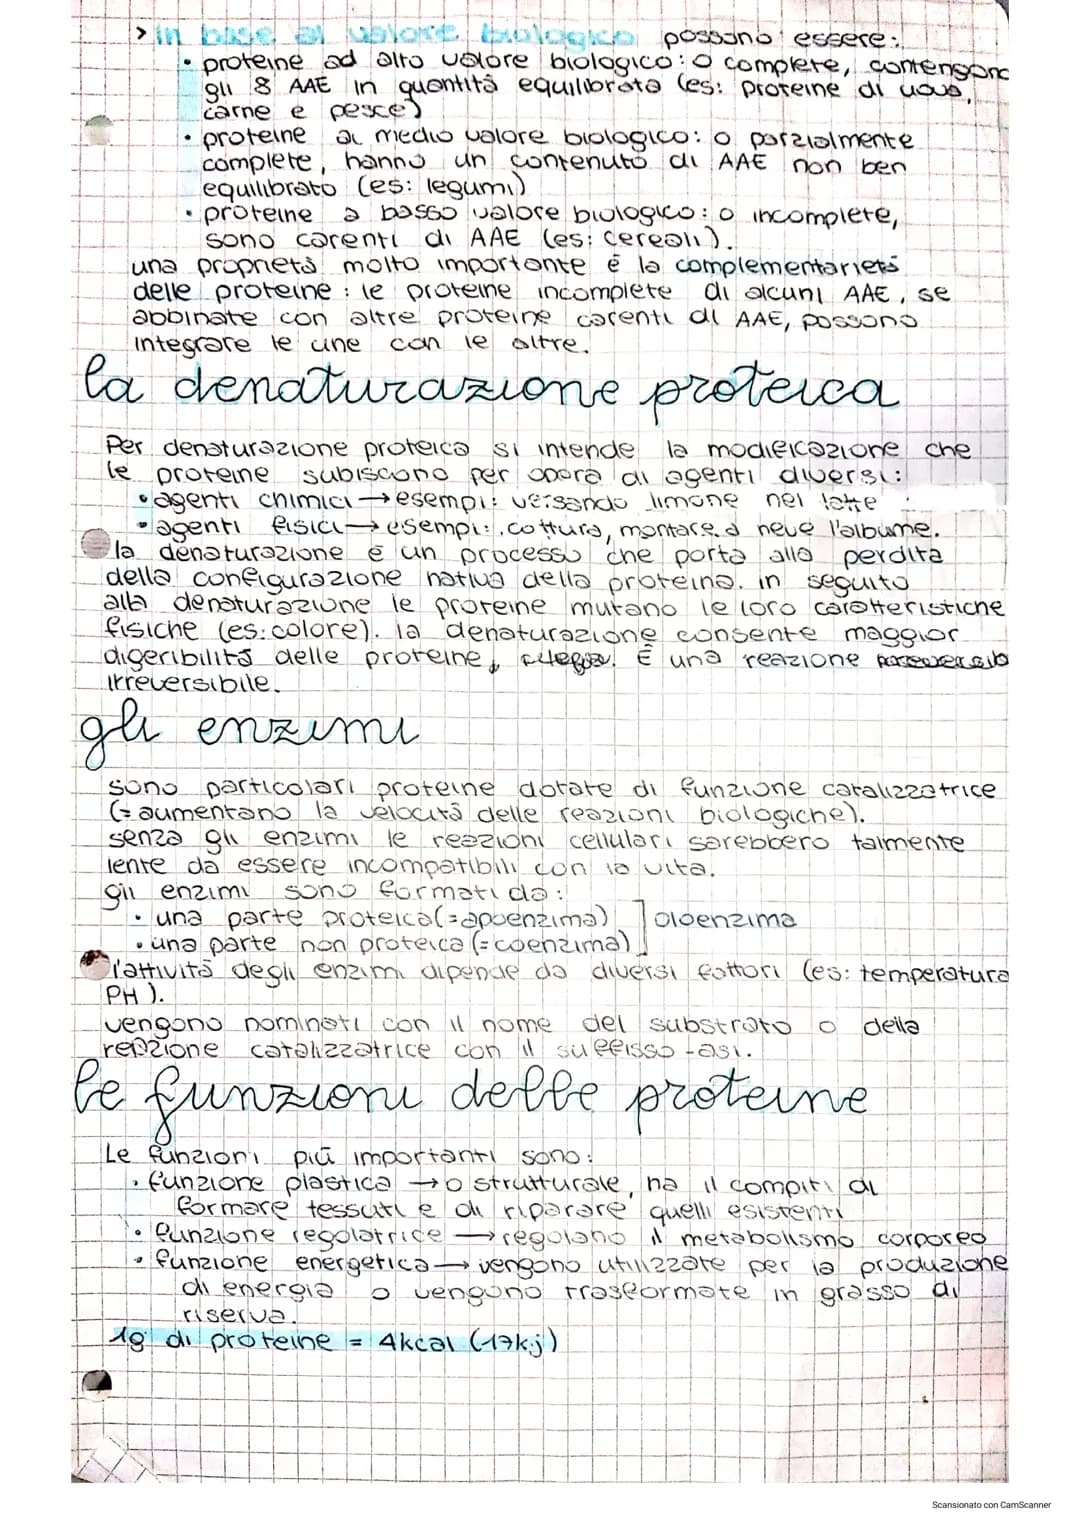 > in base al valore biologico possono essere:
• proteine ad alto valore biologico: o complete, contengono
gli 8 AAE in quantità equilibrata (es: proteine di uova,
carne e pesce)
• proteine a medio valore biologico: o parzialmente
complete, hanno un contenuto di AAE non ben
equilibrato (es: legumi)
• proteine a basso valore biologico: o incomplete,
sono carenti di AAE (es: cereali).
una proprietà molto importante è la complementarietà
delle proteine: le proteine incomplete di alcuni AAE, se
abbinate con altre proteine carenti di AAE, possono
integrare le une con le altre.
la denaturazione proteica
Per denaturazione proteica si intende la modificazione che
le proteine subiscono per opera di agenti diversi:
• agenti chimici → esempi: versando limone nel latte
• agenti fisici → esempi: cottura, montare a neve l'albume.
la denaturazione è un processo che porta alla perdita
della configurazione nativa della proteina. in seguito
alla denaturazione le proteine mutano le loro caratteristiche
fisiche (es: colore). la denaturazione consente maggior
digeribilità delle proteine, È una reazione
irreversibile.
gli enzimi
sono particolari proteine dotate di funzione catalizzatrice
(= aumentano la velocità delle reazioni biologiche).
senza gli enzimi le reazioni cellulari sarebbero talmente
lente da essere incompatibili con la vita.
gli enzimi sono formati da:
• una parte proteica (= apoenzima) ] oloenzima
• una parte non proteica (= coenzima)
l'attività degli enzimi dipende da diversi fattori (es: temperatura
PH).
vengono nominati con il nome del substrato o della
reazione catalizzatrice con il suffisso -asi.
le funzioni delle proteine
Le funzioni più importanti sono:
• funzione plastica → o strutturale, ha il compiti di
formare tessuti e di riparare quelli esistenti
• funzione regolatrice → regolano il metabolismo corporeo
• funzione energetica → vengono utilizzate per la produzione
di energia o vengono trasformate in grasso di
riserva.
1g di proteine = 4kcal (17kj)
Scansionato con CamScanner